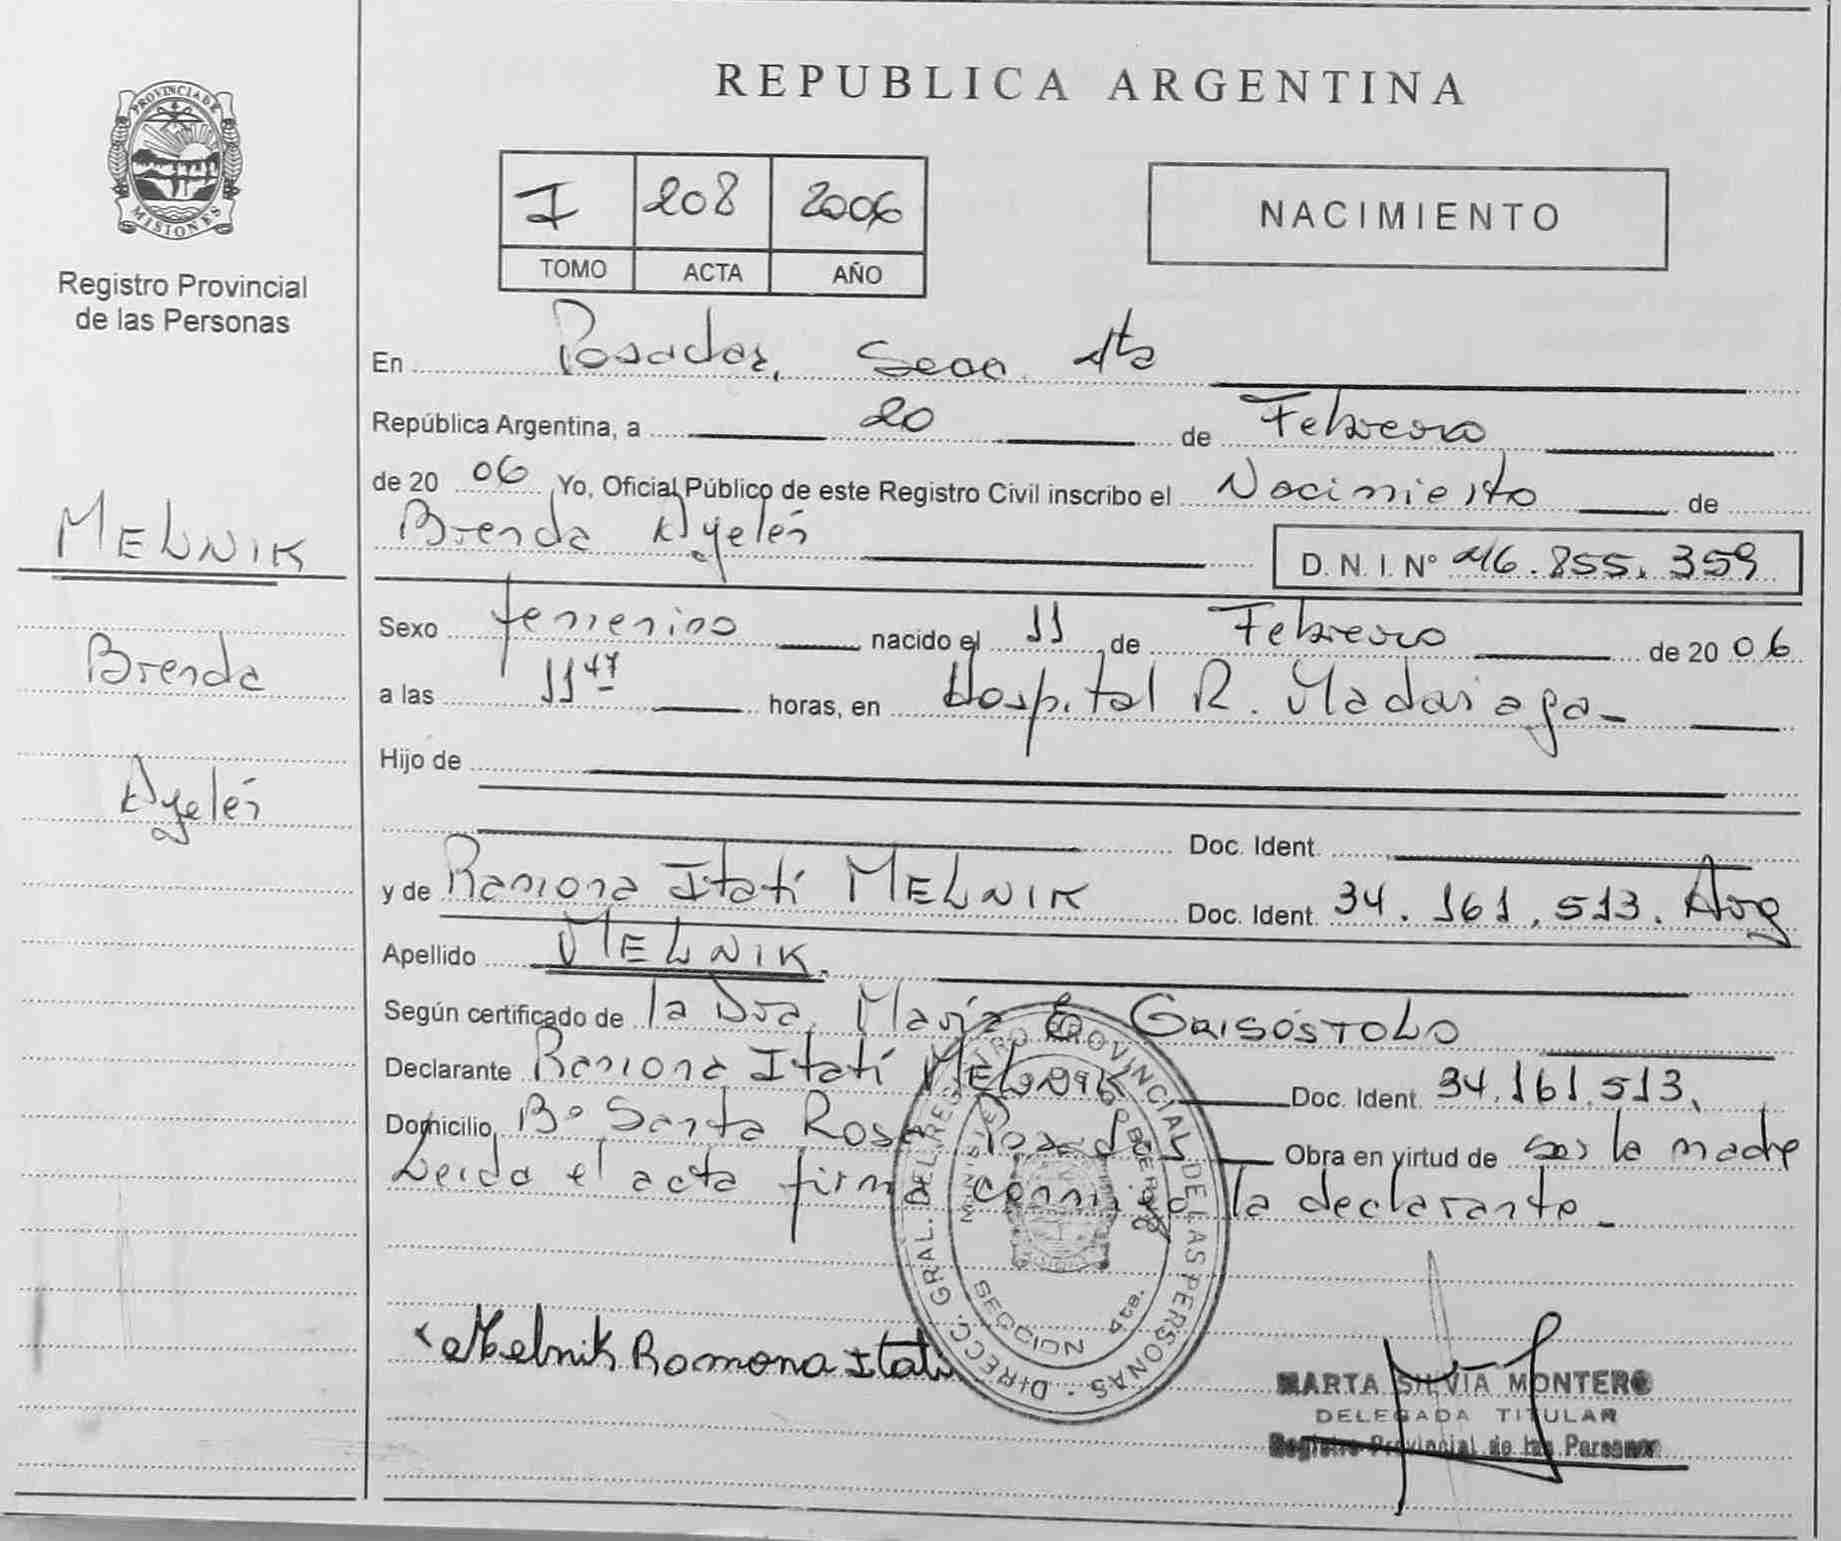 PROVINCIA DE
MISIONES
Registro Provincial
de las Personas
MELNIK
Brenda
Ayelén
REPUBLICA ARGENTINA
I 208 2006
TOMO ACTA AÑO
NACIMIENTO
En Posadas, Secc. 4ta
República Argentina, a 20 de Febrero
de 20 06 Yo, Oficial Público de este Registro Civil inscribo el Nacimiento de
Brenda Ayelén D. N. I. Nº 46.855.359
Sexo femenino nacido el 11 de Febrero de 20 06
a las 11 47 horas, en Hospital R. Madariaga-
Hijo de
Doc. Ident.
y de Ramona Itatí MELNIK Doc. Ident. 34.161.513. Arg
Apellido MELNIK.
Según certificado de la Dra. María E GRISÓSTOLO
Declarante Ramona Itatí MELNIK Doc. Ident. 34.161.513.
Domicilio Bº Santa Rosa Posadas Obra en virtud de ser la madre
Leida el acta firma conmigo la declarante.-
DIRECC. GRAL. DEL REGISTRO PROVINCIAL DE LAS PERSONAS
SECCION 4ta.
Melnik Ramona Itatí
MARTA SILVIA MONTERO
DELEGADA TITULAR
Registro Provincial de las Personas